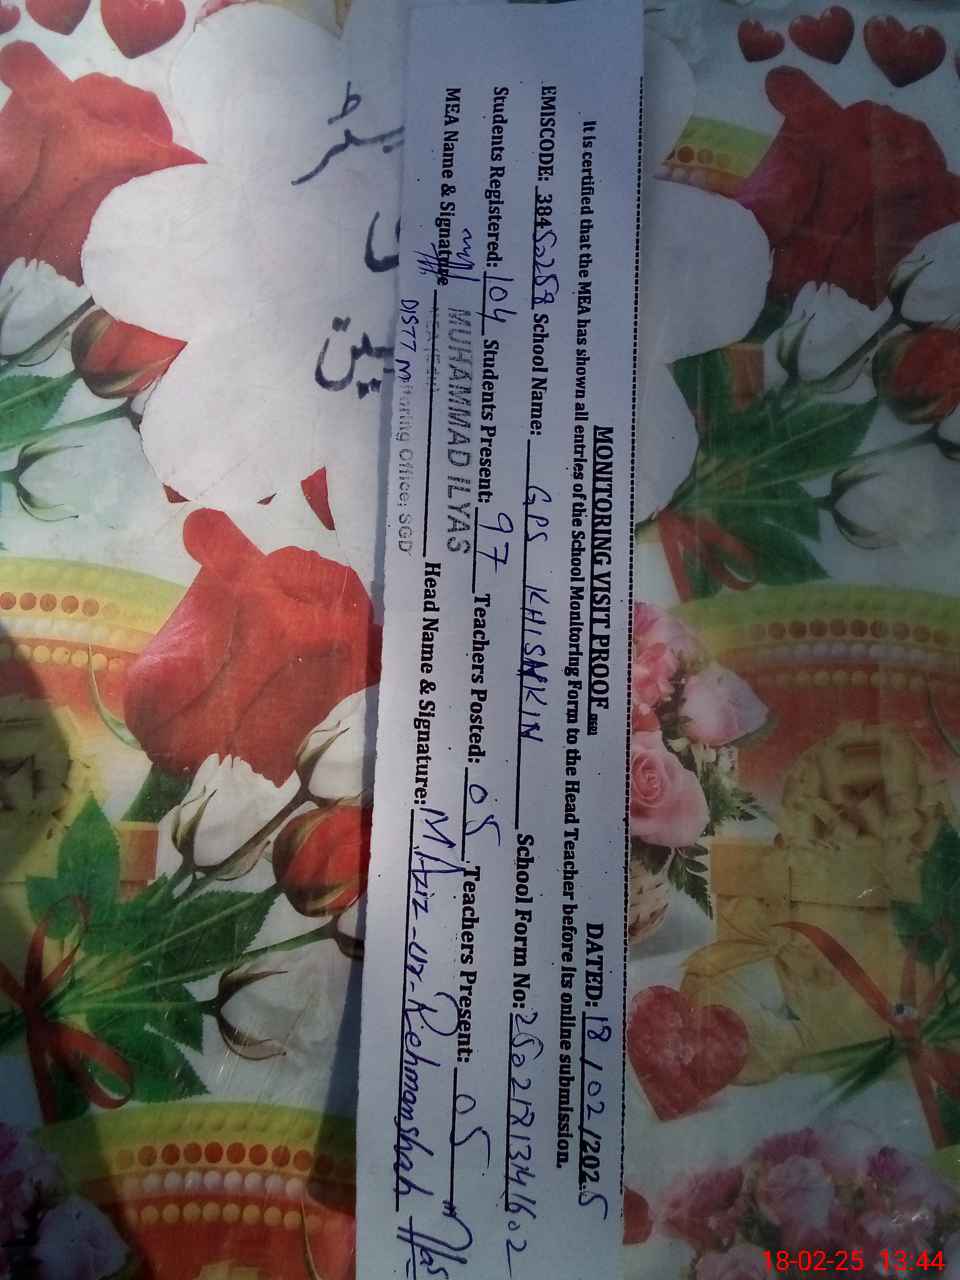 MONITORING VISIT PROOF
DATED: 18/02/2025
It is certified that the MEA has shown all entries of the School Monitoring Form to the Head Teacher before its online submission.
EMISCODE: 38450258 School Name: GPS KHISARKIN School Form No:
Students Registered: 104 Students Present: 97 Teachers Posted: 05 Teachers Present: 05
MEA Name & Signature MUHAMMAD ILYAS Head Name & Signature: M. Aziz-ur-Rehman shah
DISTT Monitoring Office: SGD
18-02-25 13:44